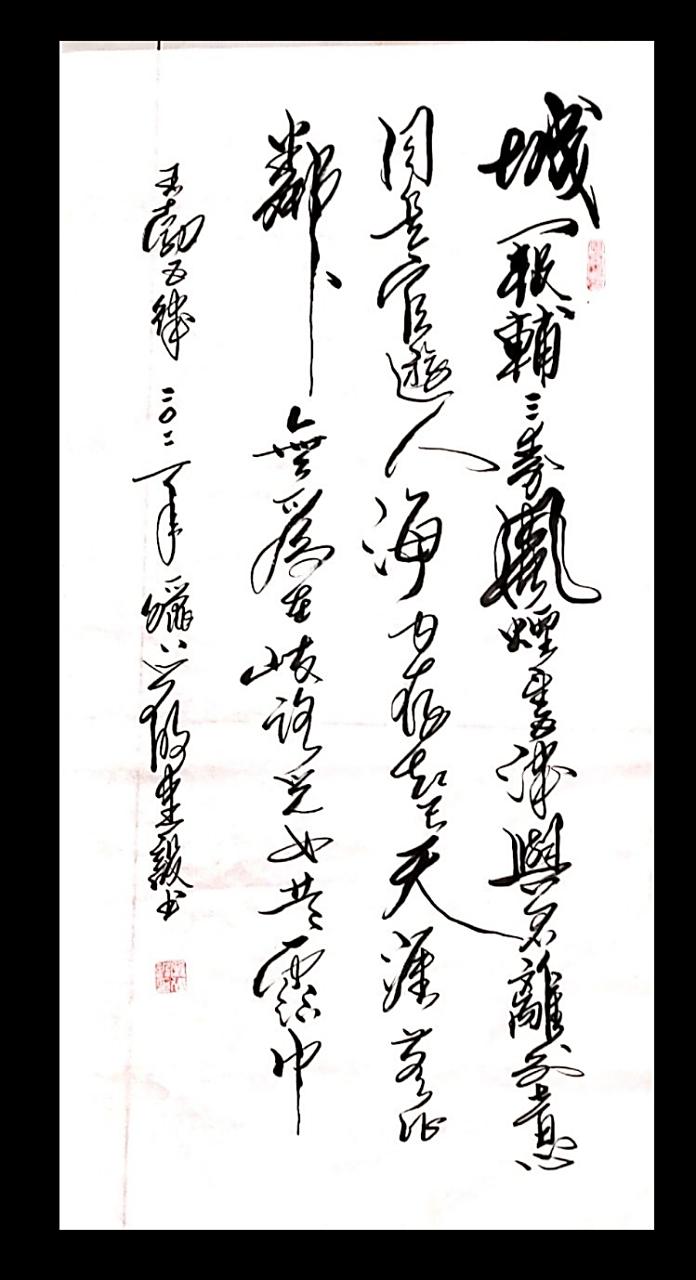 城闕輔三秦風煙望五津與君離別意
同是宦遊人海內存知己天涯若比
鄰無為在岐路兒女共霑巾
王勃五律 二〇二一年 臘八 毅书